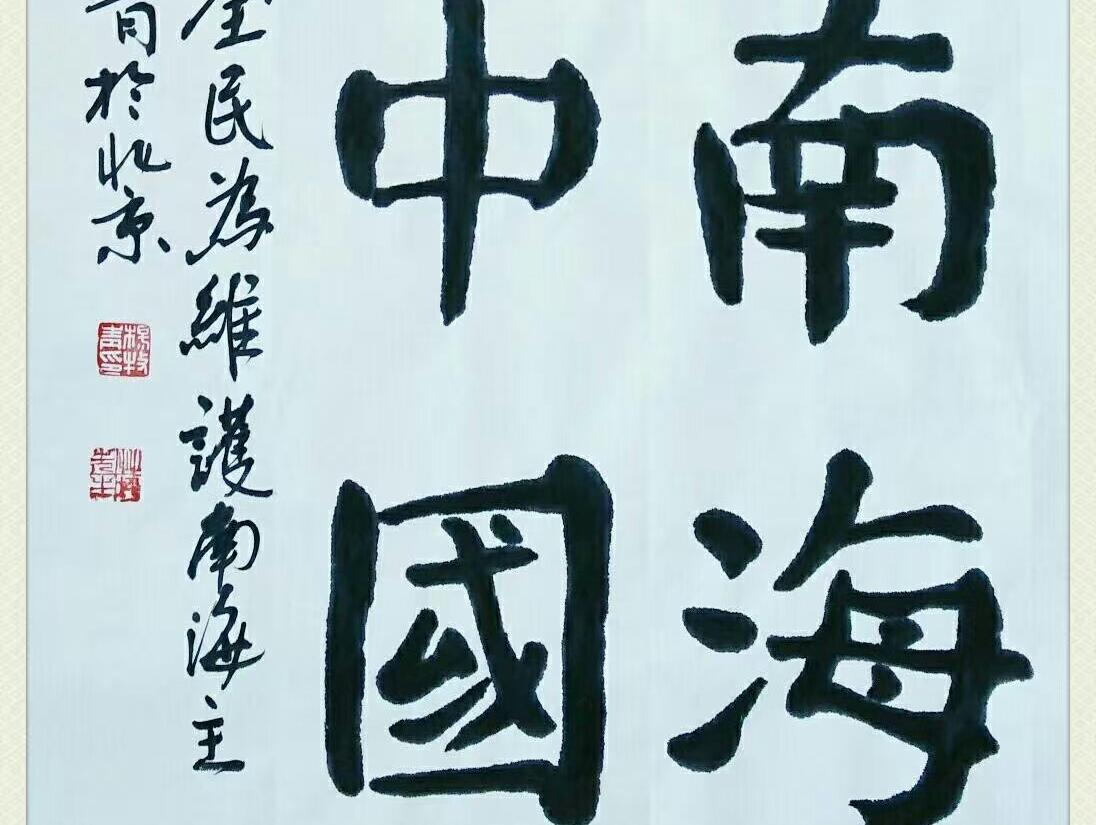 南海
中國
全民為維護南海主
於北京